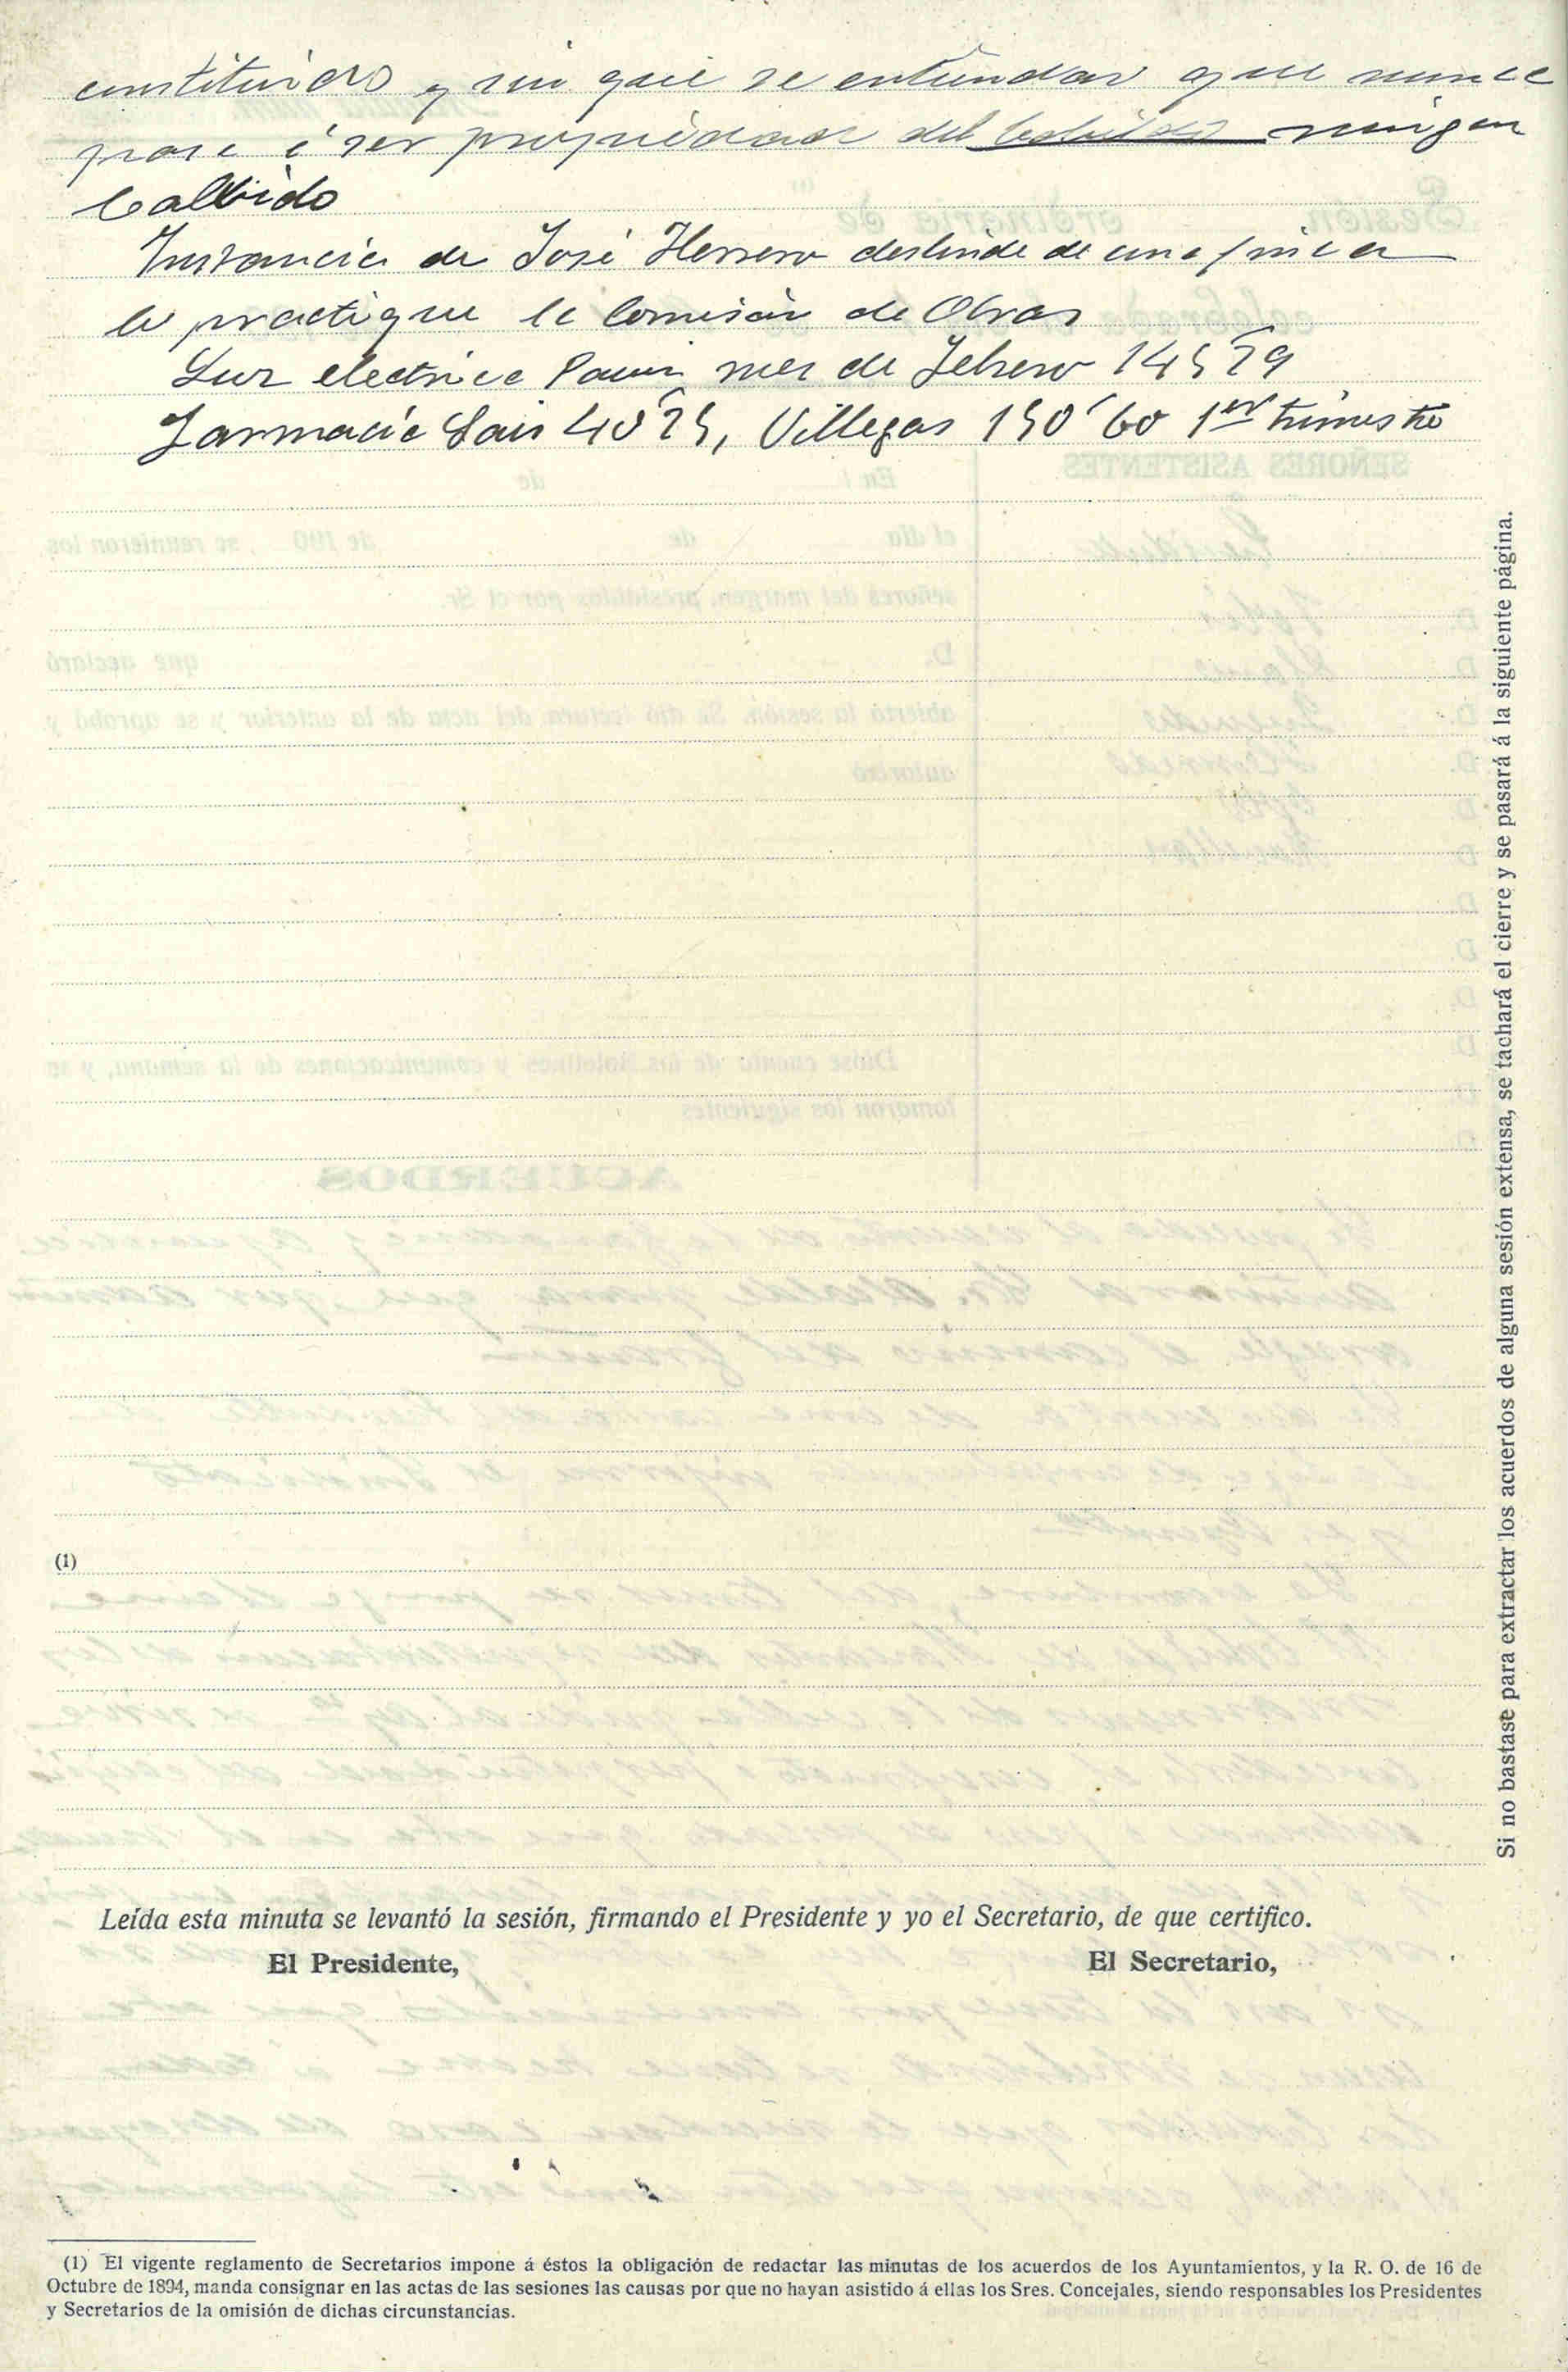 constituidos y sin que se entiendan que nunca
pase á ser propiedad del ningun
Cabildo
Instancia de José Herrero deslinde de una finca
la practique la Comisión de Obras
Luz electrica mes de Febrero 145'79
Farmacia Sais 40'25, Villegas 150'60 1er trimestre
Si no bastase para extractar los acuerdos de alguna sesión extensa, se tachará el cierre y se pasará á la siguiente página.
(1)
Leída esta minuta se levantó la sesión, firmando el Presidente y yo el Secretario, de que certifico.
El Presidente, El Secretario,
(1) El vigente reglamento de Secretarios impone á éstos la obligación de redactar las minutas de los acuerdos de los Ayuntamientos, y la R. O. de 16 de
Octubre de 1894, manda consignar en las actas de las sesiones las causas por que no hayan asistido á ellas los Sres. Concejales, siendo responsables los Presidentes
y Secretarios de la omisión de dichas circunstancias.